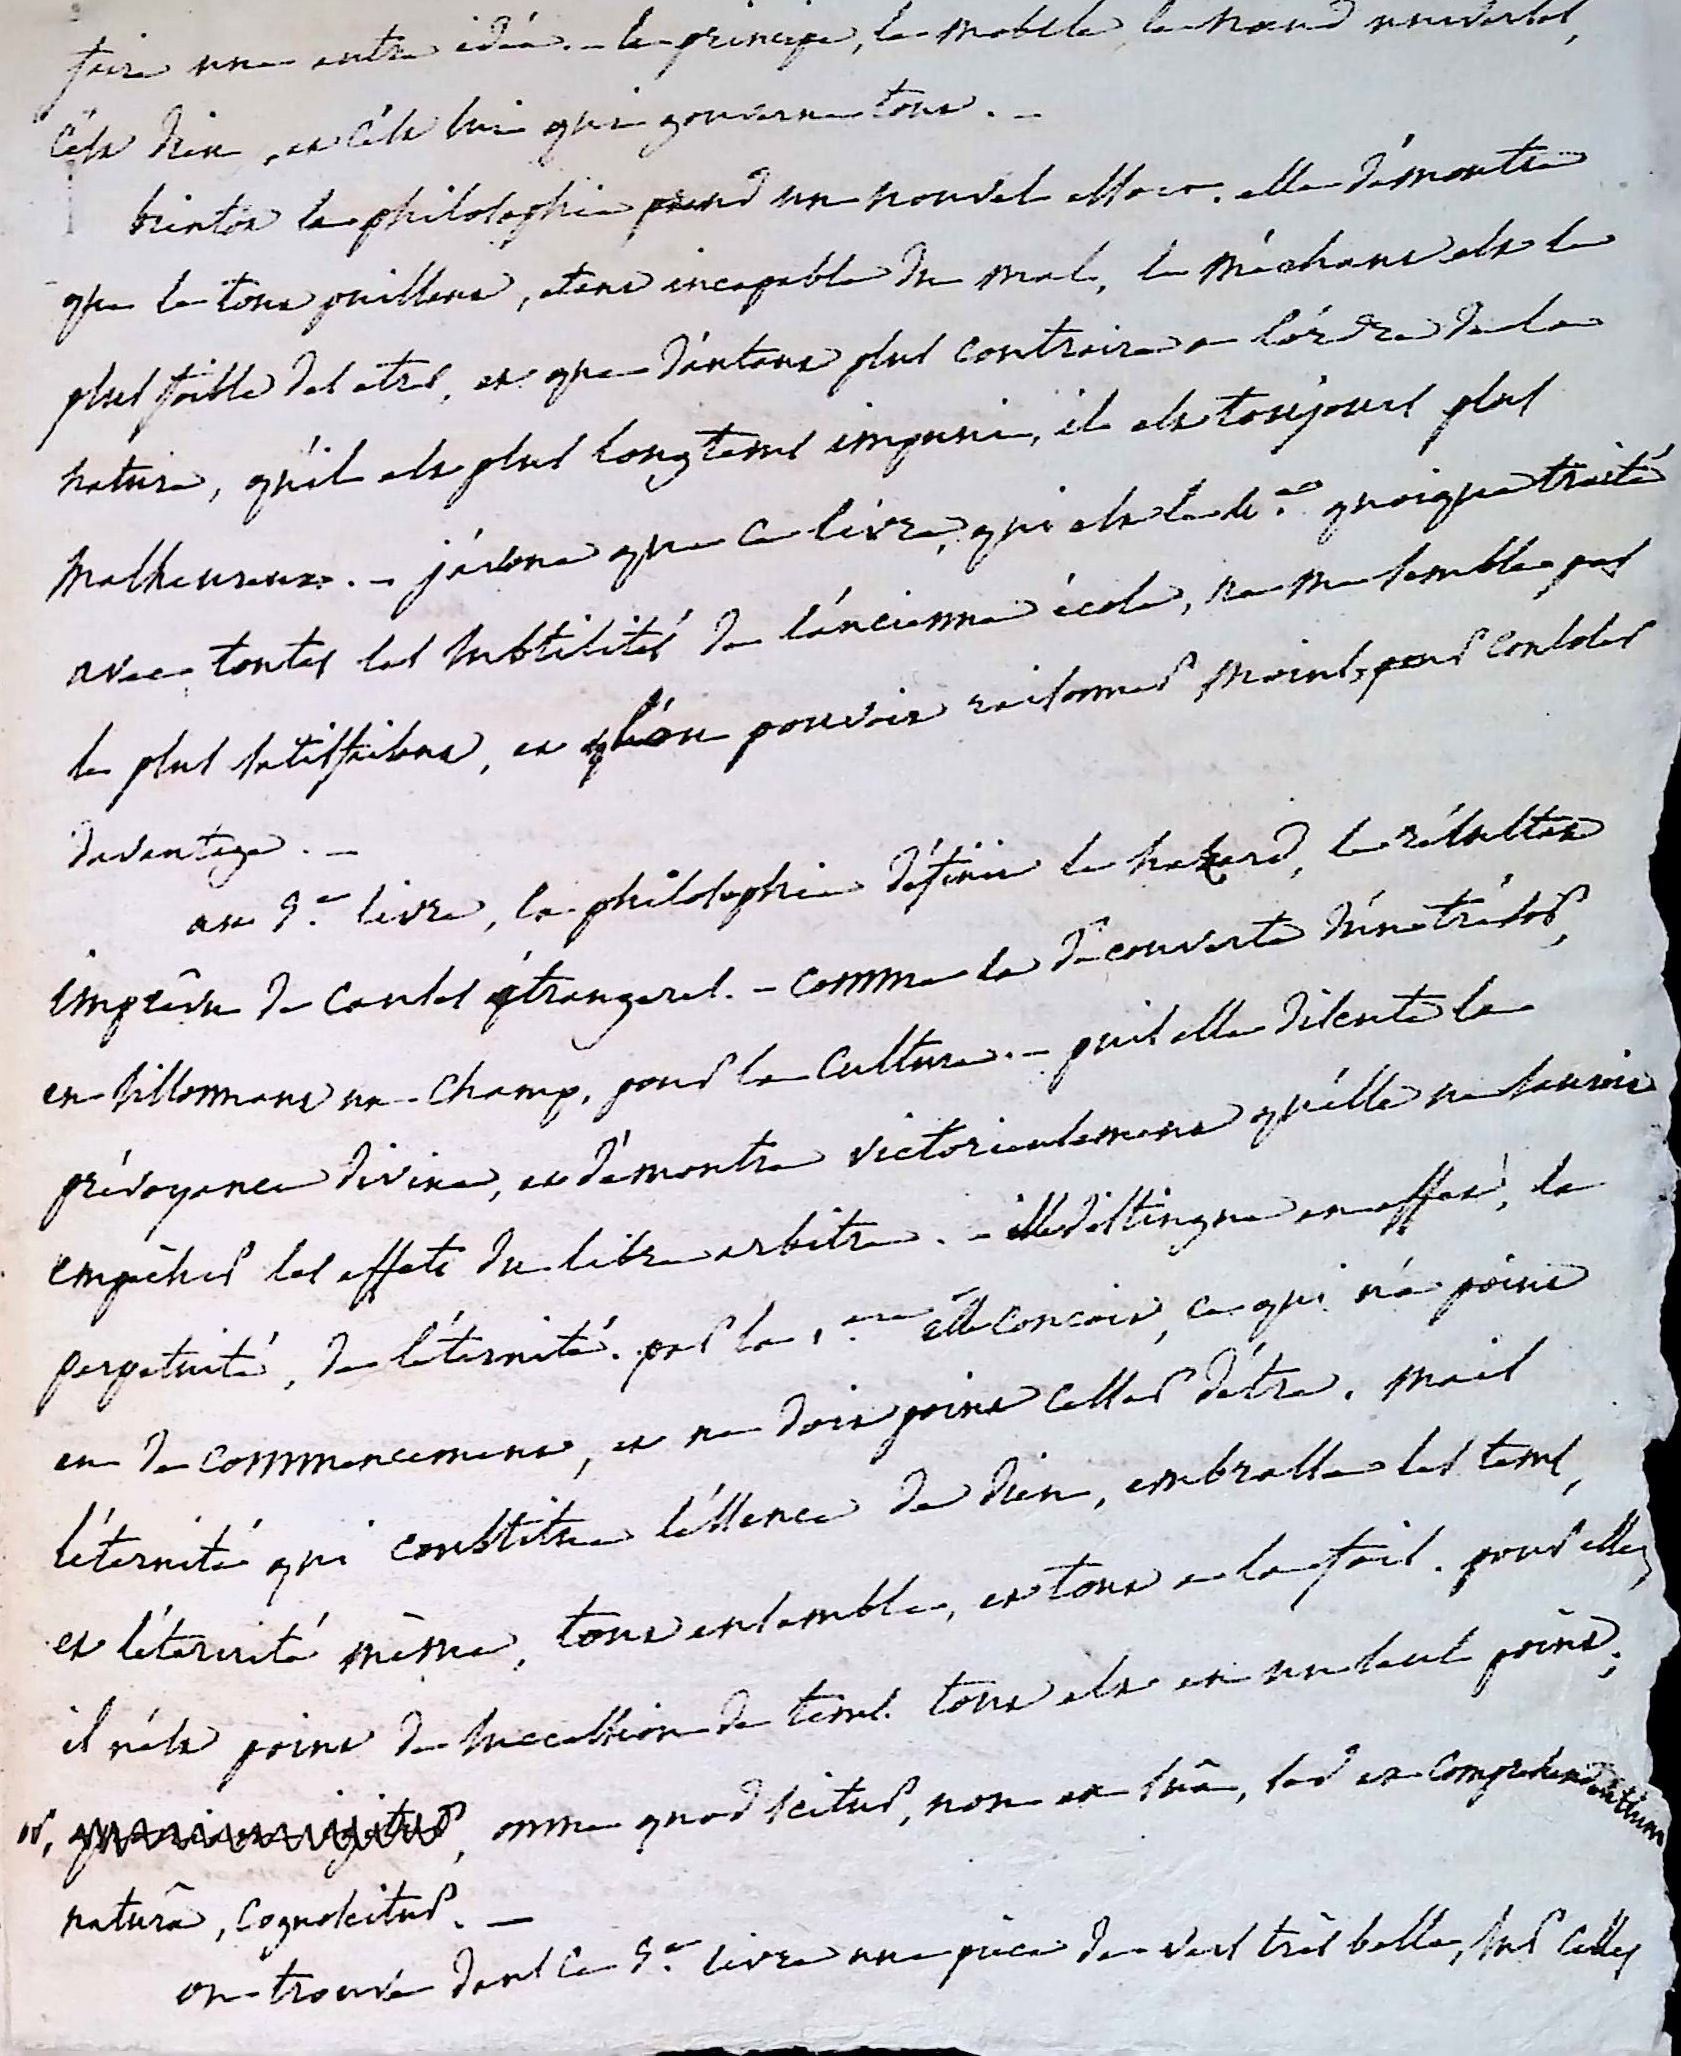 faire une autre idée. - le principe, le mobile le nœud universel,
c'est dieu, et c'est lui qui gouverne tout. -
bientot la philosophie prend un nouvel essor. elle démontre
que le tout puissant, etant incapable du mal, le méchant est le
plus foible des etres, et que d'autant plus contraire a l'ordre de la
nature, qu'il est plus longtems impuni, il est toujours plus
malheureux. - j'avoue que ce livre, qui est le 4.e quoique traité
avec toutes les subtilités de l'ancienne école, ne me semble pas
le plus satisfaisant, et qu'on pouvoit raisonner moins, pour consoler
davantage. -
au 5.e livre, la philosophie définit le hazard, le résultat
imprévu de causes étrangeres. - comme la découverte d'un trésor,
en sillonnant un champ, pour la culture. - puis elle discute la
prévoyance divine, et démontre victorieusement qu'elle ne sauroit
empêcher les effets du libre arbitre. - elle distingue en effet, la
perpetuité, de l'éternité. par la 1.ere elle concoit, ce qui n'a point
eu de commencement, et ne doit point cesser d'être. mais
l'éternité qui constitue l'essence de dieu, embrasse les tems,
et l'éternité même, tout ensemble, et tout a la fois. pour elle,
il n'est point de succession de tems. tout est en un seul point;
or, omne quod scitur, non ex suâ, sed ex comprehendentium
naturâ, cognoscitur. -
on trouve dans ce 5.e livre une pièce de vers très belle, sur celle,